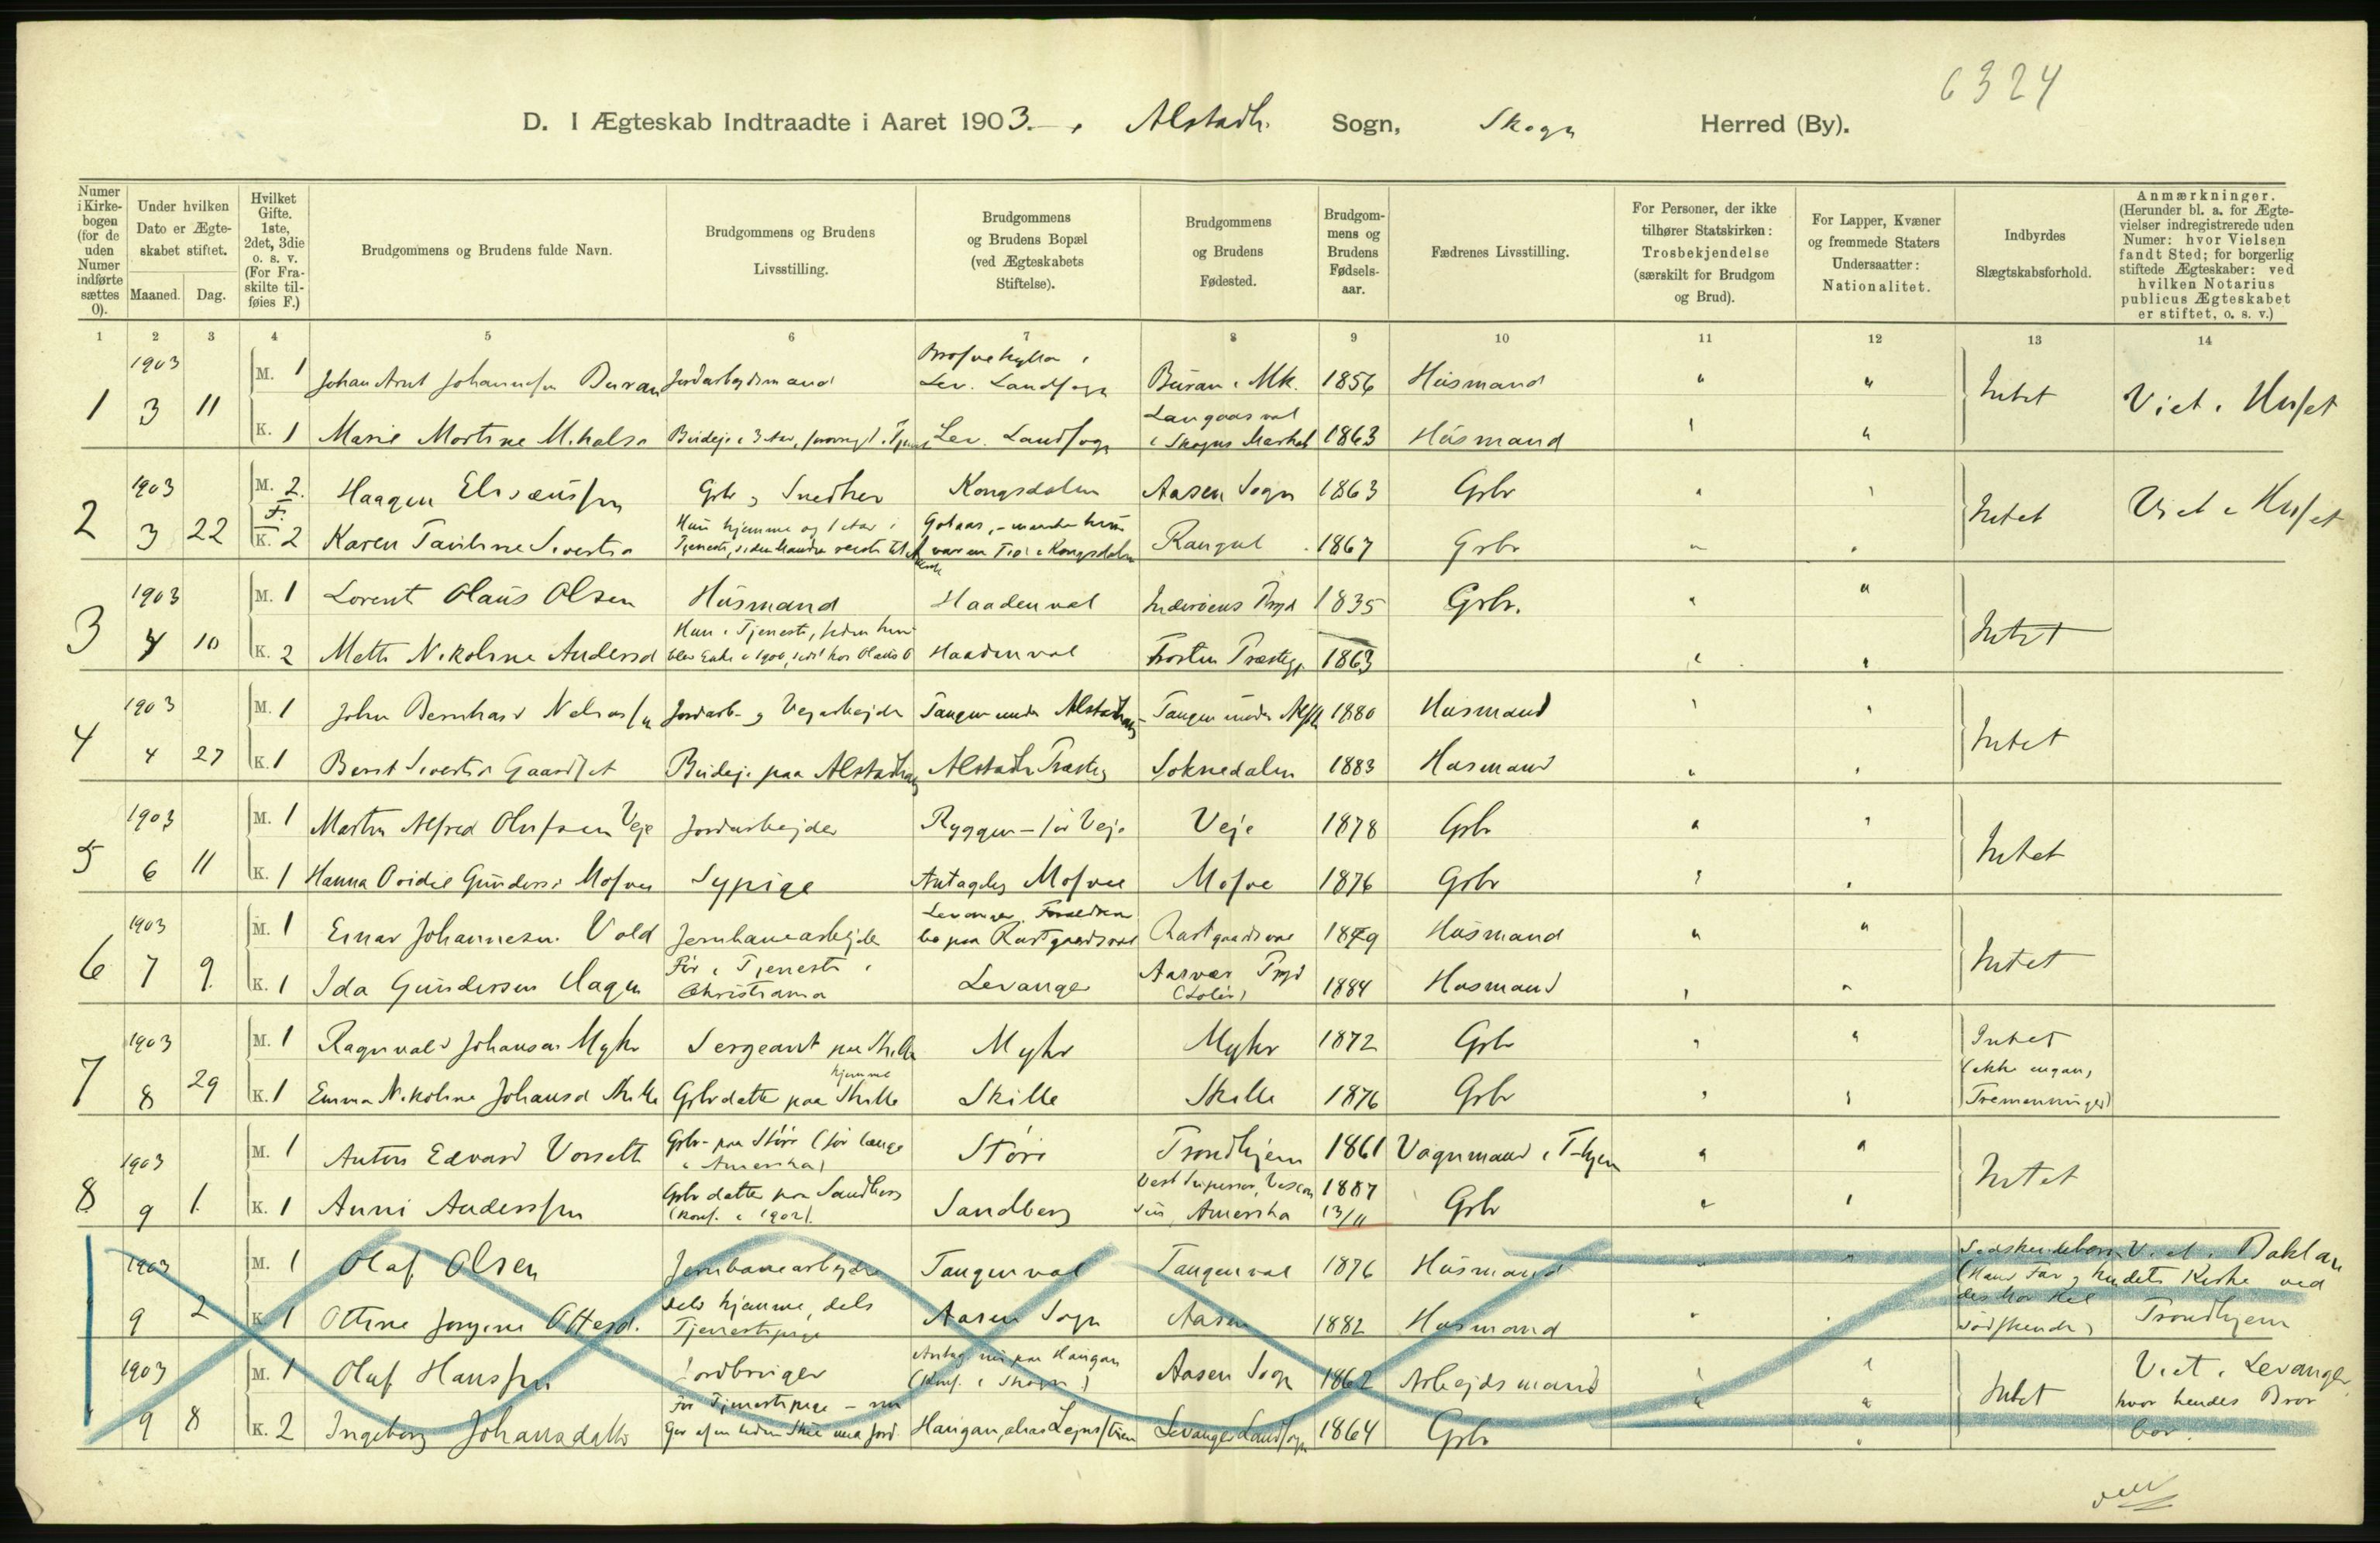 6324
D. I Ægteskab Indtraadte i Aaret 1903. , Alstadh. Sogn, Skogn Herred (By).
Numer i Kirke-bogen (for de uden Numer indførte sættes 0).
Under hvilken Dato er Ægte-skabet stiftet.
Maaned. Dag.
Hvilket Gifte. 1ste, 2det, 3die o. s. v. (For Fra-skilte til-føies F.)
Brudgommens og Brudens fulde Navn.
Brudgommens og Brudens Livsstilling.
Brudgommens og Brudens Bopæl (ved Ægteskabets Stiftelse).
Brudgommens og Brudens Fødested.
Brudgom-mens og Brudens Fødsels-aar.
Fædrenes Livsstilling.
For Personer, der ikke tilhører Statskirken: Trosbekjendelse (særskilt for Brudgom og Brud).
For Lapper, Kvæner og fremmede Staters Undersaatter: Nationalitet.
Indbyrdes Slægtskabsforhold.
Anmærkninger. (Herunder bl. a. for Ægte-vielser indregistrerede uden Numer: hvor Vielsen fandt Sted; for borgerlig stiftede Ægteskaber: ved hvilken Notarius publicus Ægteskabet er stiftet, o. s. v.)
1 2 3 4 5 6 7 8 9 10 11 12 13 14
1 1903 3 11 M. 1 Johan Arnt Johannessen Buran Jordarbejdsmand Lev. Landsogn Buran i Mk. 1856 Husmand " " Intet Viet i Huset
K. 1 Marie Martine Mikalsd Lev. Landsogn i Skogns Markab 1863 Husmand " "
2 1903 3 22 M. 2. F. Haagen Elisæussen Grbr og Snedker Kongsdalen Aasen Sogn 1863 Grbr " " Intet Viet i Huset
K. 2 Karen Pauline Sivertsd Hun hjemme og 1 Aar i Tjeneste 1867 Grbr " "
3 1903 4 10 M. 1 Lorents Olaus Olsen Husmand Haadenval Inderøens Prgd 1835 Grbr. " " Intet
K. 2 Mette Nikoline Andersd Hun i Tjeneste, siden hun blev Enke i 1900 Haadenval Frosten Præstegj. 1863 " "
4 1903 4 27 M. 1 John Bernhard Jordarb- og Vejarbejder Tangen under Alstadhaug Tangen under 1880 Husmand " " Intet
K. 1 Berit Sivertsd Gaardset Budeje paa Alstadhaug Alstadh Præstegj Soknedalen 1883 Husmand " "
5 1903 6 11 M. 1 Martin Alfred Olufsen Veje Jordarbejder Ryggen - før Veje Veje 1878 Grbr " " Intet
K. 1 Hanna Ovidie Gundersd Mosven Sypige Antagelig Mosven Mosve 1876 Grbr " "
6 1903 7 9. M. 1 Einar Johannesen Vold Jernbanearbejder Levanger. Forældrene bo paa Rostgaardsval 1879 Husmand " " Intet
K. 1 Ida Gundersen Hagen Før i Tjeneste i Christiania Levanger 1884 Husmand " "
7 1903 8 29 M. 1 Ragnvald Johansen Myhr Sergeant paa Skille Myhr Myhr 1872 Grbr " " Intet
K. 1 Emma Nikoline Johansd Skille Grbrdatter hjemme paa Skille Skille Skille 1876 Grbr " " (ikke engang Tremenninger)
8 1903 9 1. M. 1 Anton Edvard Grbr- paa Støre (før længe i Amerika) Støre Trondhjem 1861 Vognmand i T-hjem " " Intet
K. 1 Anni Anderssen Grbrdatter paa Sandberg (konf. i 1902). Sandberg Vest Superior, Amerika 1887 13/11 Grbr " "
1903 9 2 M. 1 Olaf Olsen Jernbanearbejder Tangenval Tangenval 1876 Husmand " " Sødskendebørn Viet i Baklan
K. 1 Ottine Jorgine Ottesd. Dels hjemme, dels Tjenestepige Aasen Sogn Aasen 1882 Husmand " (Hans Far og hendes Mor Hel Sødskende) dets Kirke ved Trondhjem
1903 9 8 M. 1 Olaf Hanssen Jordbruger (Konf. i Skogn) Aasen Sogn 1862 Arbejdsmand " " Intet Viet i Levanger,
K. 2 Ingeborg Johansdatter Før Tjenestepige - nu Levanger Landsogn 1864 Grbr " " hvor hendes Bror bor.